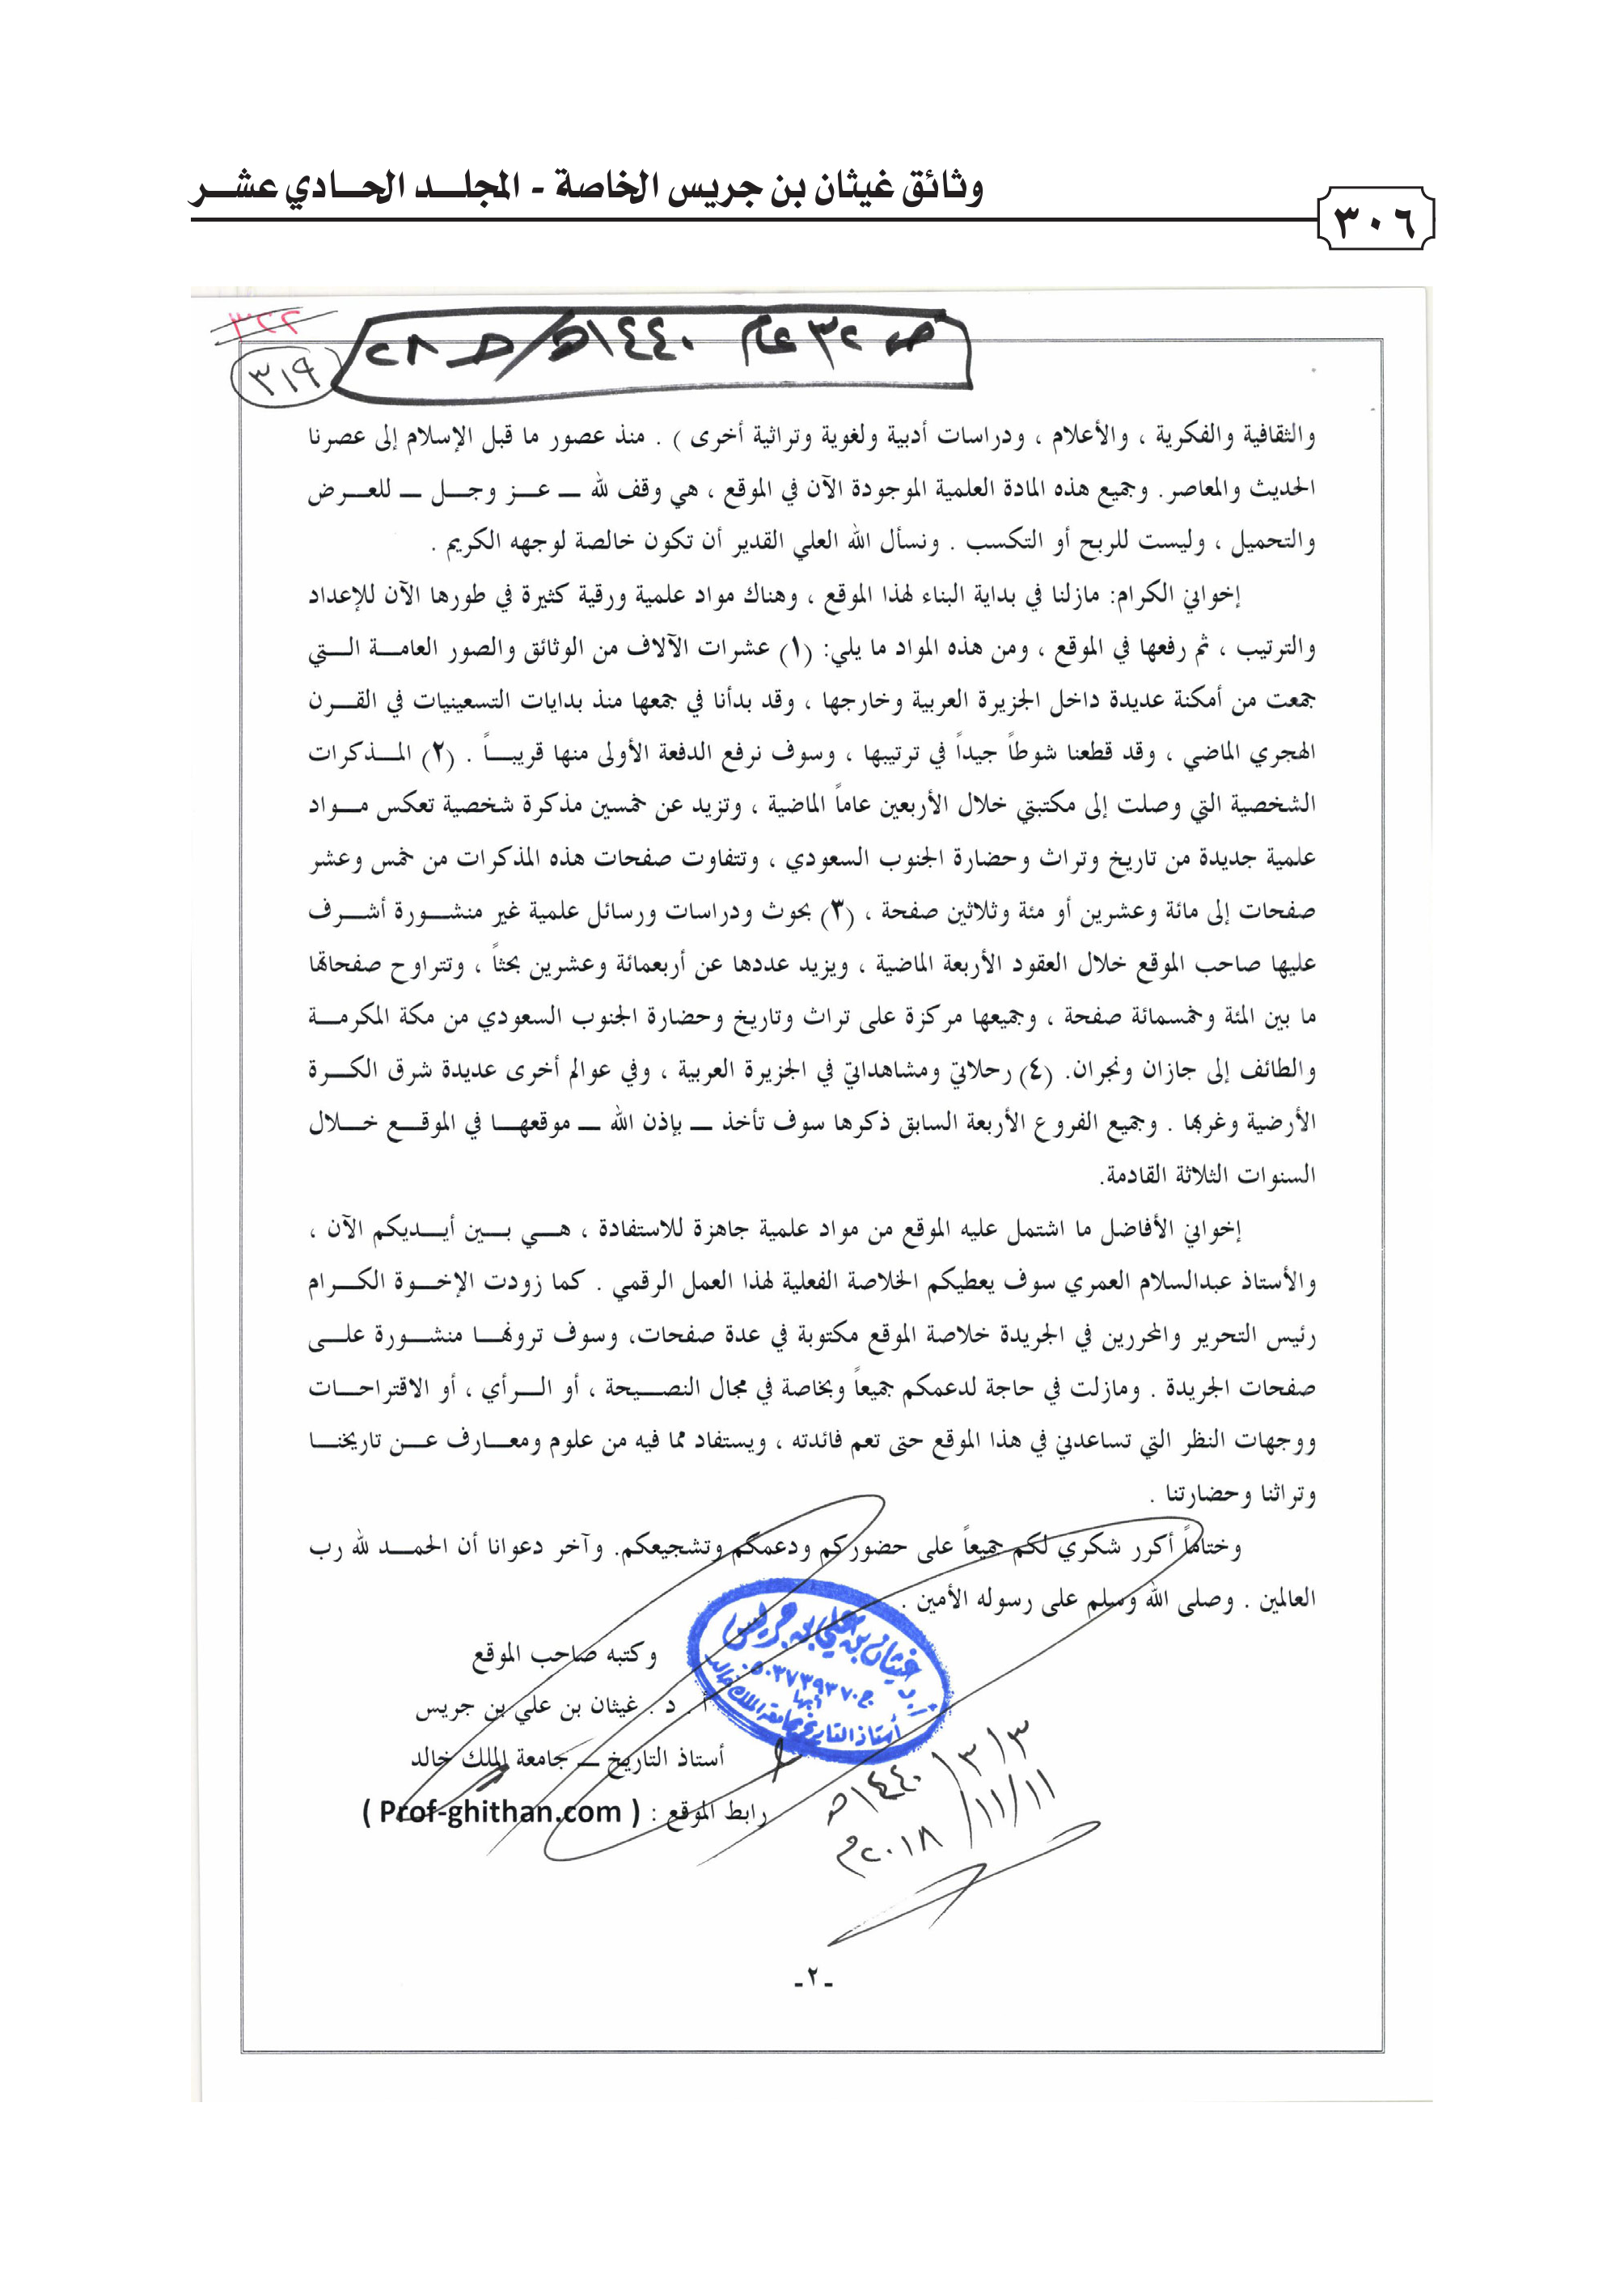 وثائق غيثان بن جريس الخاصة - المجلـــد الحـــادي عشـــر
٣٠٦
٣٢٢
٣١٩
ص ٣٢ عام ١٤٤٠هـ/ حـ ٢٨
والثقافية والفكرية ، والأعلام ، ودراسات أدبية ولغوية وتراثية أخرى ) . منذ عصور ما قبل الإسلام إلى عصرنا
الحديث والمعاصر. وجميع هذه المادة العلمية الموجودة الآن في الموقع ، هي وقف لله ـــ عـــز وجـــل ـــ للعـــرض
والتحميل ، وليست للربح أو التكسب . ونسأل الله العلي القدير أن تكون خالصة لوجهه الكريم .
إخواني الكرام: مازلنا في بداية البناء لهذا الموقع ، وهناك مواد علمية ورقية كثيرة في طورها الآن للإعداد
والترتيب ، ثم رفعها في الموقع ، ومن هذه المواد ما يلي: (١) عشرات الآلاف من الوثائق والصور العامـــة الـــتي
جمعت من أمكنة عديدة داخل الجزيرة العربية وخارجها ، وقد بدأنا في جمعها منذ بدايات التسعينيات في القـــرن
الهجري الماضي ، وقد قطعنا شوطاً جيداً في ترتيبها ، وسوف نرفع الدفعة الأولى منها قريبـــاً . (٢) المـــذكرات
الشخصية التي وصلت إلى مكتبتي خلال الأربعين عاماً الماضية ، وتزيد عن خمسين مذكرة شخصية تعكس مـــواد
علمية جديدة من تاريخ وتراث وحضارة الجنوب السعودي ، وتتفاوت صفحات هذه المذكرات من خمس وعشر
صفحات إلى مائة وعشرين أو مئة وثلاثين صفحة ، (٣) بحوث ودراسات ورسائل علمية غير منشـــورة أشـــرف
عليها صاحب الموقع خلال العقود الأربعة الماضية ، ويزيد عددها عن أربعمائة وعشرين بحثاً ، وتتراوح صفحاتها
ما بين المئة وخمسمائة صفحة ، وجميعها مركزة على تراث وتاريخ وحضارة الجنوب السعودي من مكة المكرمـــة
والطائف إلى جازان ونجران. (٤) رحلاتي ومشاهداتي في الجزيرة العربية ، وفي عوالم أخرى عديدة شرق الكـــرة
الأرضية وغربها . وجميع الفروع الأربعة السابق ذكرها سوف تأخذ ـــ بإذن الله ـــ موقعهـــا في الموقـــع خـــلال
السنوات الثلاثة القادمة.
إخواني الأفاضل ما اشتمل عليه الموقع من مواد علمية جاهزة للاستفادة ، هـــي بـــين أيـــديكم الآن ،
والأستاذ عبدالسلام العمري سوف يعطيكم الخلاصة الفعلية لهذا العمل الرقمي . كما زودت الإخـــوة الكـــرام
رئيس التحرير والمحررين في الجريدة خلاصة الموقع مكتوبة في عدة صفحات، وسوف ترونهـــا منشـــورة علـــى
صفحات الجريدة . ومازلت في حاجة لدعمكم جميعاً وبخاصة في مجال النصـــيحة ، أو الـــرأي ، أو الاقتراحـــات
ووجهات النظر التي تساعدني في هذا الموقع حتى تعم فائدته ، ويستفاد مما فيه من علوم ومعـــارف عـــن تاريخنـــا
وتراثنا وحضارتنا .
وختاماً أكرر شكري لكم جميعاً على حضوركم ودعمكم وتشجيعكم. وآخر دعوانا أن الحمـــد لله رب
العالمين . وصلى الله وسلم على رسوله الأمين .
وكتبه صاحب الموقع
أ . د . غيثان بن علي بن جريس
أستاذ التاريخ ـــ جامعة الملك خالد
رابط الموقع : ( Prof-ghithan.com )
غيثان بن علي بن جريس
ج ٠٥٠٣٧٣٩٣٧٠
أبها
أستاذ التاريخ بجامعة الملك خالد
٣/٣/١٤٤٠هـ
١١/١١/٢٠١٨م
ـ ٢ ـ